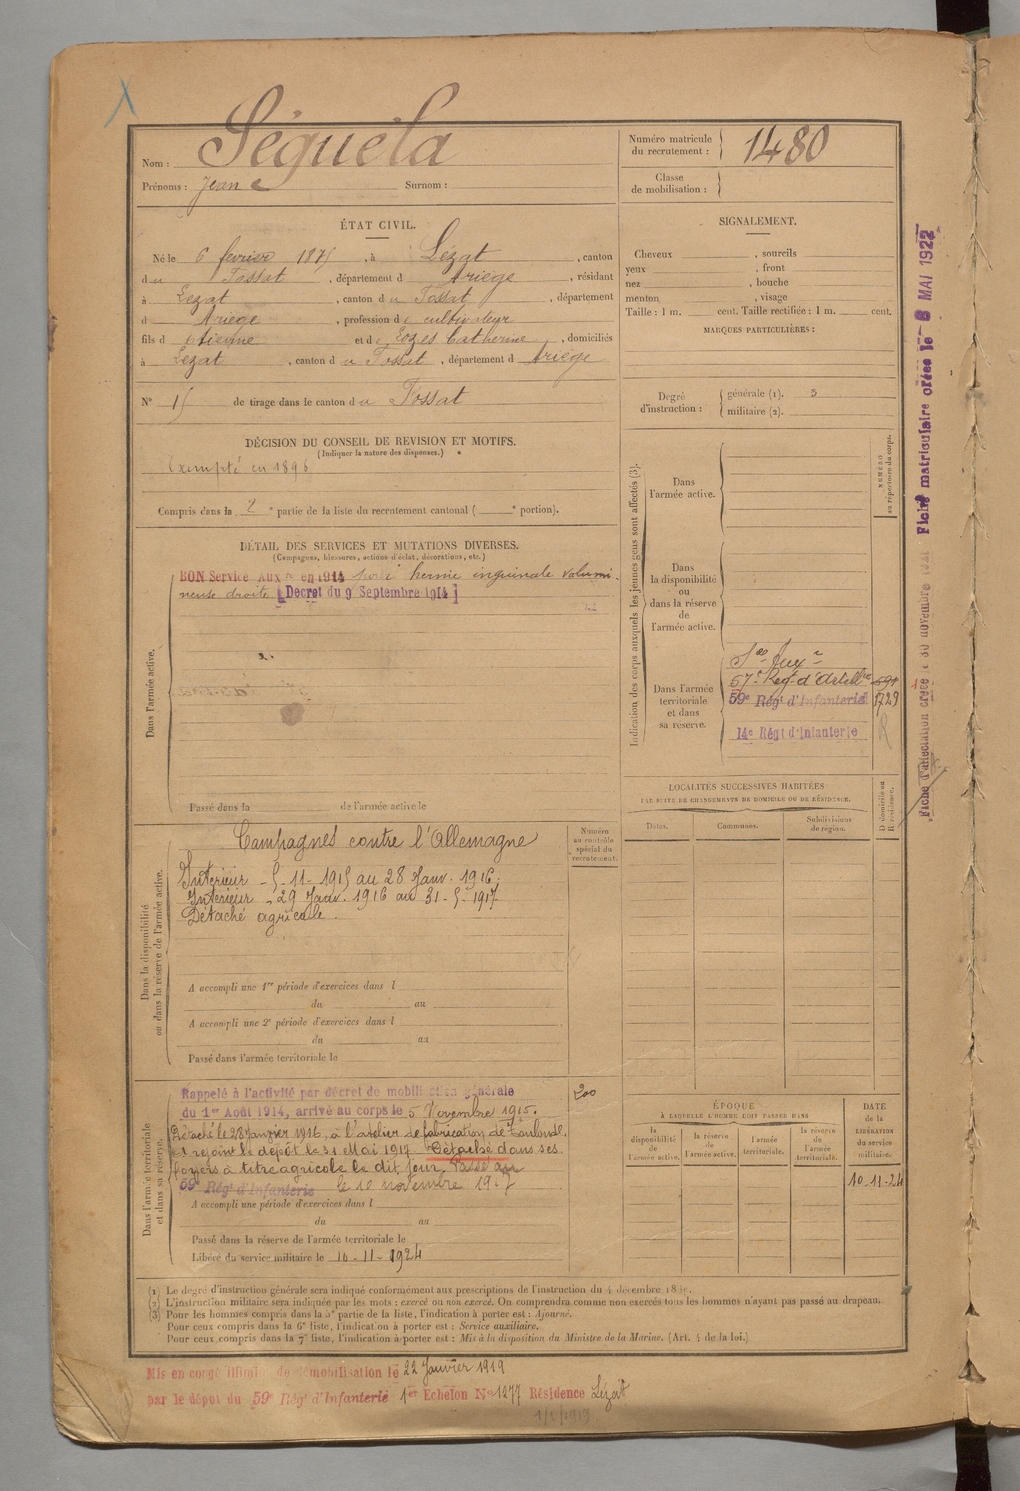 Nom : Séguéla
Prénoms : Jean Surnom :
Numéro matricule du recrutement : 1480
Classe de mobilisation :
ÉTAT CIVIL.
Né le 6 février 1875, à Lézat, canton
du Fossat, département d Ariège, résidant
à Lezat, canton du Fossat, département
d Ariege, profession de cultivateur
fils d Etienne et de Eozes Catherine, domiciliés
à Lezat, canton du Fossat, département d Ariège
N° 15 de tirage dans le canton du Fossat
DÉCISION DU CONSEIL DE REVISION ET MOTIFS.
(Indiquer la nature des dispenses.)
Exempté en 1896
Compris dans la 2e partie de la liste du recrutement cantonal ( e portion).
DÉTAIL DES SERVICES ET MUTATIONS DIVERSES.
(Campagnes, blessures, actions d'éclat, décorations, etc.)
Dans l'armée active.
BON Service Auxre en 1914 pour hernie inguinale volumi-
neuse droite [Decret du 9 Septembre 1914]
Passé dans la de l'armée active le
Dans la disponibilité
ou dans la réserve de l'armée active.
Numéro
au contrôle
spécial du
recrutement.
Campagnes contre l'Allemagne
Intérieur - 5-11-1915 au 28 Janv. 1916.
Intérieur - 29 Janv. 1916 au 31-5-1917
Détaché agricole.
A accompli une 1re période d'exercices dans l
du au
A accompli une 2e période d'exercices dans l
du au
Passé dans l'armée territoriale le
Dans l'armée territoriale
et dans sa réserve.
Rappelé à l'activité par décret de mobilisation générale
du 1er Août 1914, arrivé au corps le 5 Novembre 1915.
200
Détaché le 28 Janvier 1916, à l'atelier de fabrication de Toulouse,
a rejoint le dépôt le 31 Mai 1917 Détaché dans ses
foyers à titre agricole le dit jour. Passé au
59e Régt d'Infanterie le 10 novembre 1917
A accompli une période d'exercices dans l
du au
Passé dans la réserve de l'armée territoriale le
Libéré du service militaire le 10-11-1924
SIGNALEMENT.
Cheveux , sourcils
yeux , front
nez , bouche
menton , visage
Taille : 1 m. cent. Taille rectifiée : 1 m. cent.
MARQUES PARTICULIÈRES :
Degré d'instruction : générale (1). 3
militaire (2).
Indication des corps auxquels les jeunes gens sont affectés (3).
NUMÉRO
au répertoire du corps.
Dans
l'armée active.
Dans
la disponibilité
ou
dans la réserve
de
l'armée active.
Dans l'armée
territoriale
et dans
sa réserve.
Sce Auxre
57e Regt d'Artillie
59e Régt d'Infanterie 1729
14e Régt d'Infanterie
LOCALITÉS SUCCESSIVES HABITÉES
PAR SUITE DE CHANGEMENTS DE DOMICILE OU DE RÉSIDENCE.
Dates. Communes. Subdivisions de région.
D domicile ou R résidence.
ÉPOQUE
À LAQUELLE L'HOMME DOIT PASSER DANS
la disponibilité de l'armée active. la réserve de l'armée active. l'armée territoriale. la réserve de l'armée territoriale.
DATE
de la
LIBÉRATION
du service
militaire.
10-11-24
(1) Le degré d'instruction générale sera indiqué conformément aux prescriptions de l'instruction du 4 décembre
(2) L'instruction militaire sera indiquée par les mots : exercé ou non exercé. On comprendra comme non exercés tous les hommes n'ayant pas passé au drapeau.
(3) Pour les hommes compris dans la 5e partie de la liste, l'indication à porter est : Ajourné.
Pour ceux compris dans la 6e liste, l'indication à porter est : Service auxiliaire.
Pour ceux compris dans la 7e liste, l'indication à porter est : Mis à la disposition du Ministre de la Marine. (Art. 4 de la loi.)
Mis en congé illimité de démobilisation le 22 Janvier 1919
par le dépôt du 59e Régt d'Infanterie 1er Echelon No 1277 Résidence Lézat
Fiche d'affectation créée le 30 novembre
Fiche matriculaire créée le 8 MAI 1922